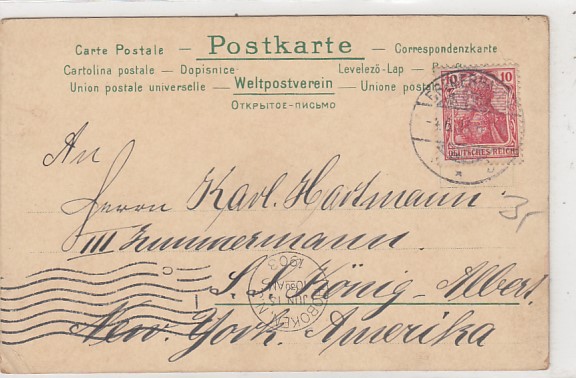 Carte Postale – Postkarte – Correspondenzkarte
Cartolina postale – Dopisnice – Levelező-Lap –
Union postale universelle – Weltpostverein – Unione postale
ОТКРЫТОЕ-ПИСЬМО
10 10
DEUTSCHES REICH
An
Herrn Karl Hartmann
III Zimmermann
S. S. König-Albert
New. York. Amerika
3,-
HOBOKEN, N.J.
JUN 15
1030AM
1903